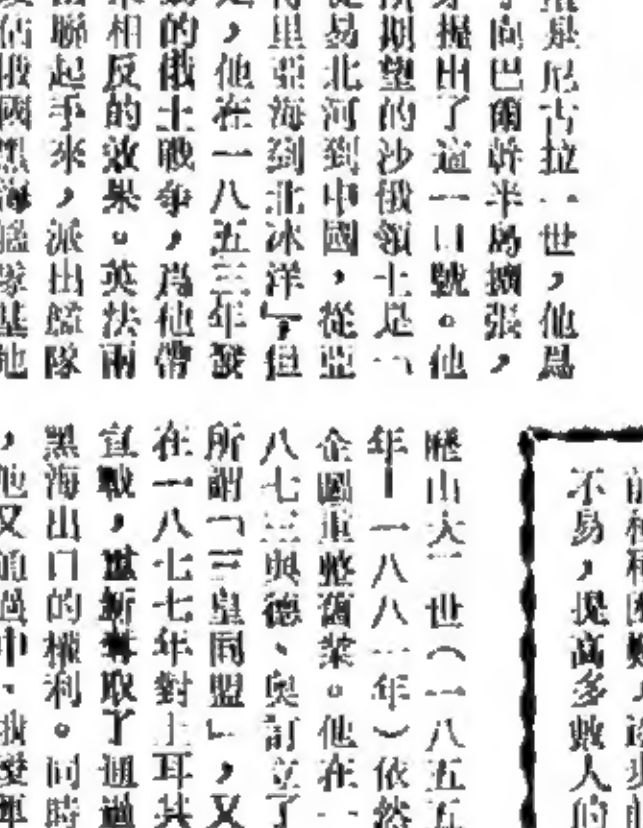 尼古拉一世，他爲
向巴爾幹半島擴張，
提出了這一口號。他
期望的沙俄領土是「
易北河到中國，從亞
里亞海到北冰洋」但
，他在一八五三年發
的俄土戰爭，爲他帶
相反的效果。英法兩
聯起手來，派出艦隊
俄國黑海艦隊基地
歷山大二世（一八五五
年—一八八一年）依然
企圖重整舊業。他在一
八七三與德、奧訂立了
所謂「三皇同盟」，又
在一八七七年對土耳其
宣戰，重新奪取了通過
黑海出口的權利。同時
，他又通過中、俄
不易，提高多數人的